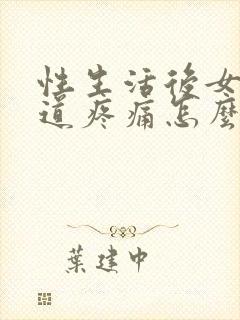 性生活後女
道疼痛怎麼
葉建中